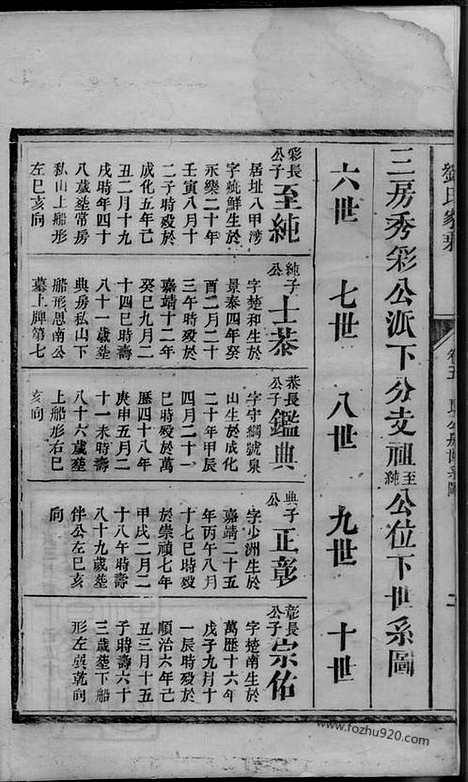 劉氏家乘
卷五
三房秀彩公派下分支祖至純公位下世系圖
六世 七世 八世 九世 十世
彩長公子至純
居址八甲湾
字純鮮生於
永樂二十年
壬寅八月十
二子時殁於
成化五年己
丑二月十九
戌時年四十
八歲塟常房
私山上船形
左巳亥向
純子公士恭
字楚和生於
景泰四年癸
酉二月二十
三午時殁於
嘉靖十二年
癸巳九月二
十四巳時壽
八十一歲塟
典房私山下
船形思南公
墓上牌第七
恭長公子鑑典
字守綱號泉
山生於成化
二十年甲辰
四月二十一
巳時殁於萬
歷四十八年
庚申五月二
十一未時壽
八十六歲塟
上船形右巳
亥向
典子公正彰
字少洲生於
嘉靖二十五
年丙午八月
十七巳時殁
於崇禎七年
甲戌二月二
十八午時壽
八十九歲塟
伴公左巳亥
向
彰長公子宗佑
字楚南生於
萬歷十六年
戊子九月十
一辰時殁於
順治六年己
丑三月十五
子時壽六十
三歲塟下船
形左巽乾向
www.fozhu920.com